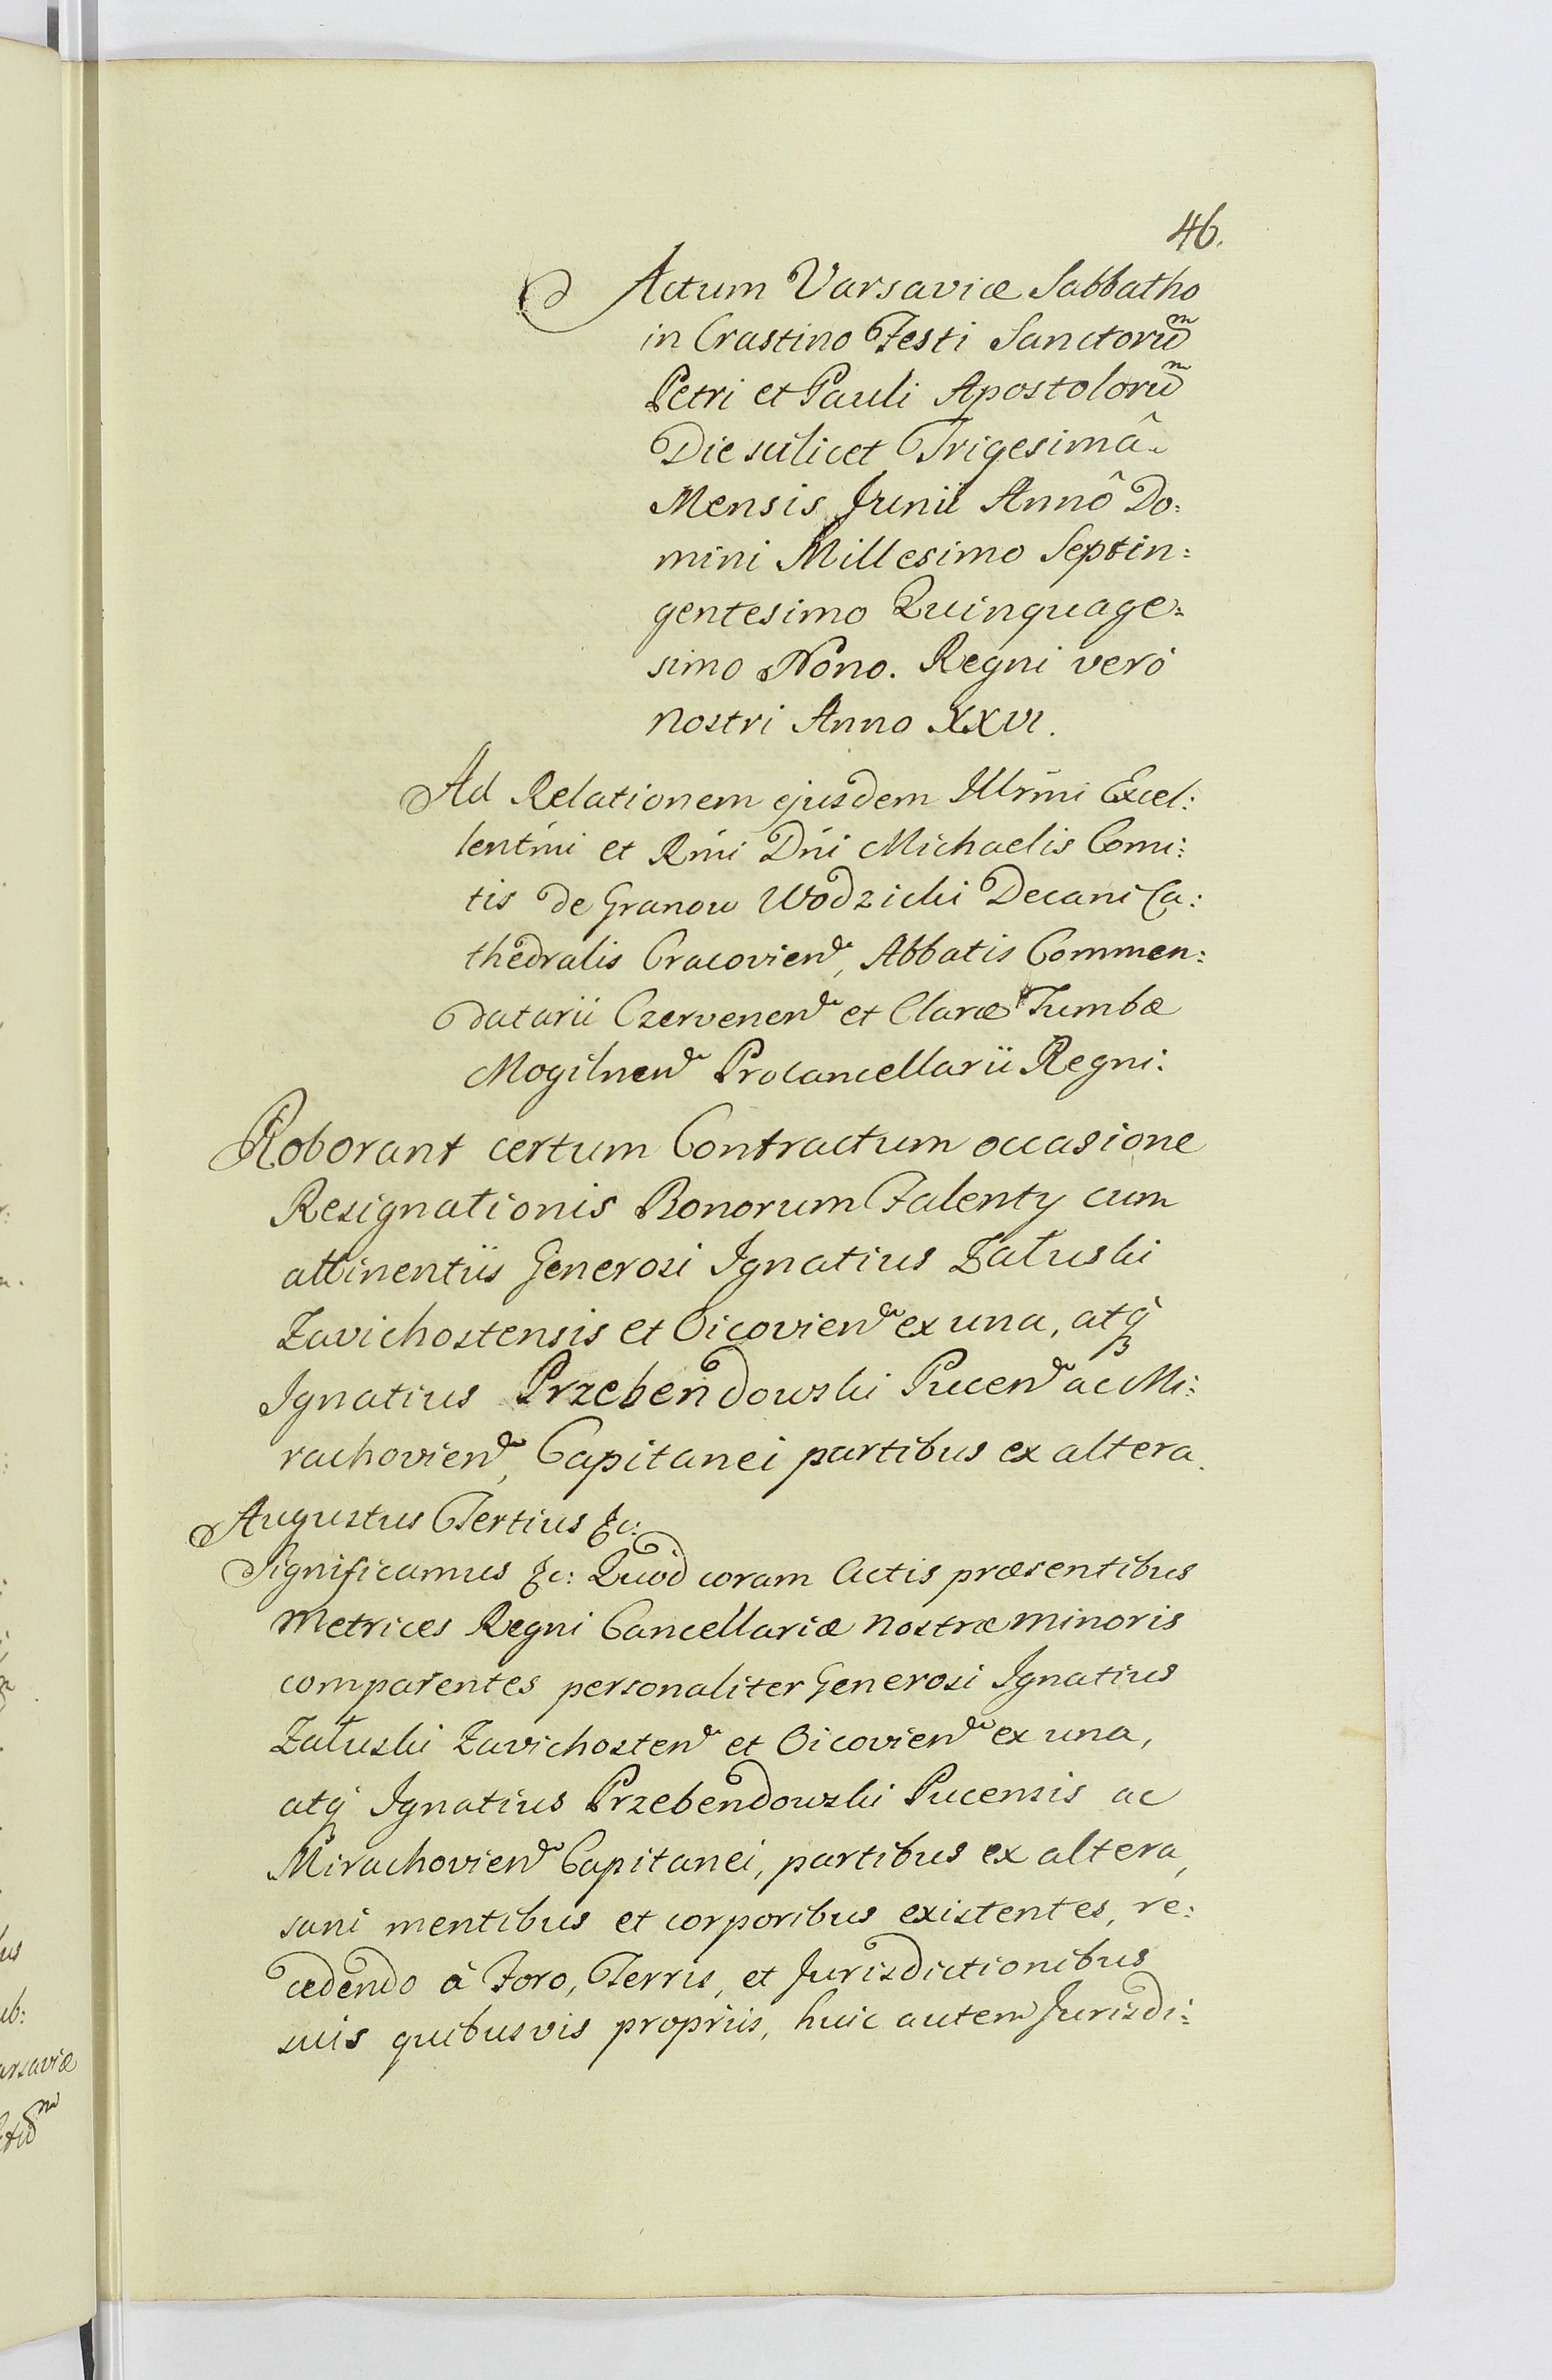 46.
Actum Varsaviæ Sabbatho
in Crastino Festi Sanctorũm
Petri et Pauli Apostolorũm
Die scilicet Trigesimâ
Mensis Junii Annô Do:
mini Millesimo Septin:
gentesimo Quinquage:
simo Nono. Regni verò
nostri Anno XXVI.
Ad Relationem ejusdem Illrm̃i Excel:
lentm̃i et Rm̃i Dn̄i Michaelis Comi:
tis de Granow Wodzicki Decani Ca:
thedralis Cracovien̄, Abbatis Commen:
datarii Czervenen̄ et Claræ Tumbæ
Mogilnen̄ Procancellarii Regni:
Roborant certum Contractum occasione
Resignationis Bonorum Falenty cum
attinentiis Generosi Ignatius Załuski
Zavichostensis et Oicovien̄ ex una, atq́
Ignatius Przebendowski Pucen̄ ac Mi:
rachovien̄, Capitanei partibus ex altera.
Augustus Tertius &c:
Significamus &c: Quod coram Actis præsentibus
Metrices Regni Cancellariæ nostræ minoris
comparentes personaliter Generosi Ignatius
Załuski Zavichosten̄ et Oicovien̄ ex una,
atq́ Ignatius Przebendowski Pucensis ac
Mirachovien̄ Capitanei, partibus ex altera,
sani mentibus et corporibus existentes, re:
cedendo à Foro, Terris, et Jurisdictionibus
suis quibusvis propriis, huic autem Jurisdi: